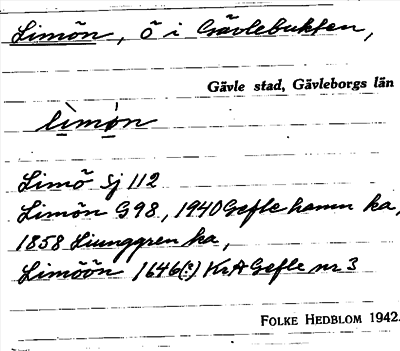 Limön, ö i Gävlebukten,
Gävle stad, Gävleborgs län
lìmo̩n
Limö Sj 112
Limön G98, 1940 Gefle hamn ka,
1858 Ljunggren ka,
Limöön 1646(?) KrA Gefle nr 3
FOLKE HEDBLOM 1942.